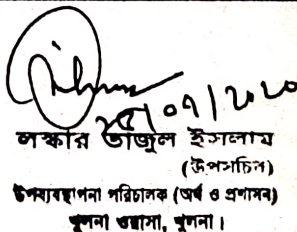 ২৫/০৭/২০২০
লস্কার তাজুল ইসলাম
(উপসচিব)
উপব্যবস্থাপনা পরিচালক (অর্থ ও প্রশাসন)
খুলনা ওয়াসা, খুলনা।